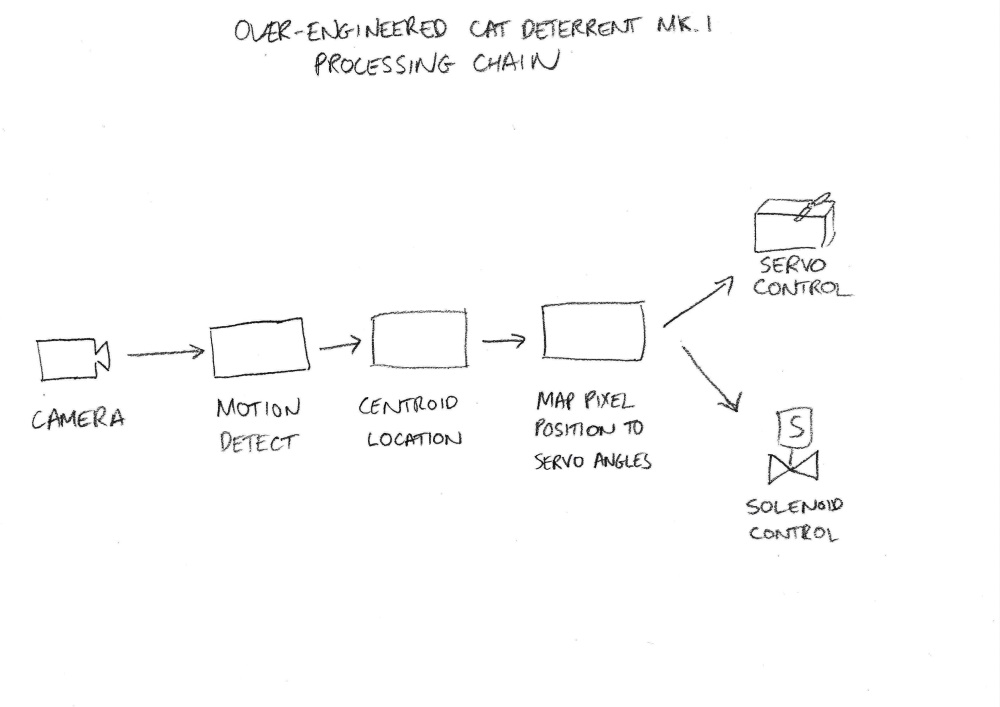 OVER-ENGINEERED CAT DETERRENT MK.1
PROCESSING CHAIN
CAMERA
MOTION
DETECT
CENTROID
LOCATION
MAP PIXEL
POSITION TO
SERVO ANGLES
SERVO
CONTROL
S
SOLENOID
CONTROL